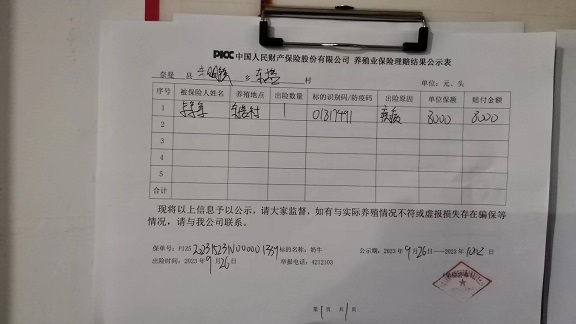 PICC 中国人民财产保险股份有限公司 养殖业保险理赔结果公示表
奈曼 县 乡 村
单位:元、头
序号 被保险人姓名 养殖地点 出险数量 标的识别码/防疫码 出险原因 单位保额 赔付金额
1 1 01817491 疾病 8000 8000
2
3
4
5
合计
现将以上信息予以公示,请大家监督,如有与实际养殖情况不符或虚报损失存在骗保等
情况,请与我公司联系。
保单号: 标的名称:奶牛 公示期:2023年9月26日—2023年10月2日
出险时间:2023年9月26日 举报电话:4212103
第1页 共1页